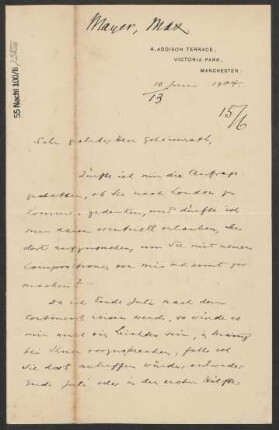 Mayer, Max
4. ADDISON TERRACE,
VICTORIA PARK,
MANCHESTER.
10 Juni 1904.
/13
15/6
55 Nachl 100/B
Sehr geehrter Herr Geheimrath,
Dürfte ich mir die Anfrage
gestatten, ob Sie nach London zu
kommen gedenken, und dürfte ich
mir dann eventuell erlauben, Sie
dort aufzusuchen, um Sie mit neuen
Compositionen von mir bekannt zu
machen?
Da ich Ende Juli nach dem
Continent reisen werde, so würde es
mir auch ein Leichtes sein, in
bei Ihnen vorzusprechen, falls ich
Sie dort antreffen würde, entweder
Ende Juli oder in der ersten Hälfte